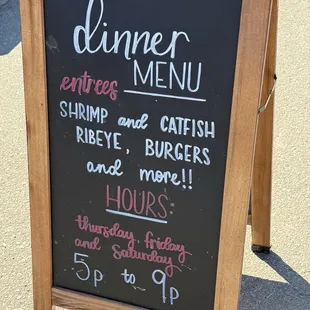 dinner
MENU
entrees
SHRIMP and CATFISH
RIBEYE, BURGERS
and more!!
HOURS:
thursday, friday
and Saturday
5p to 9p